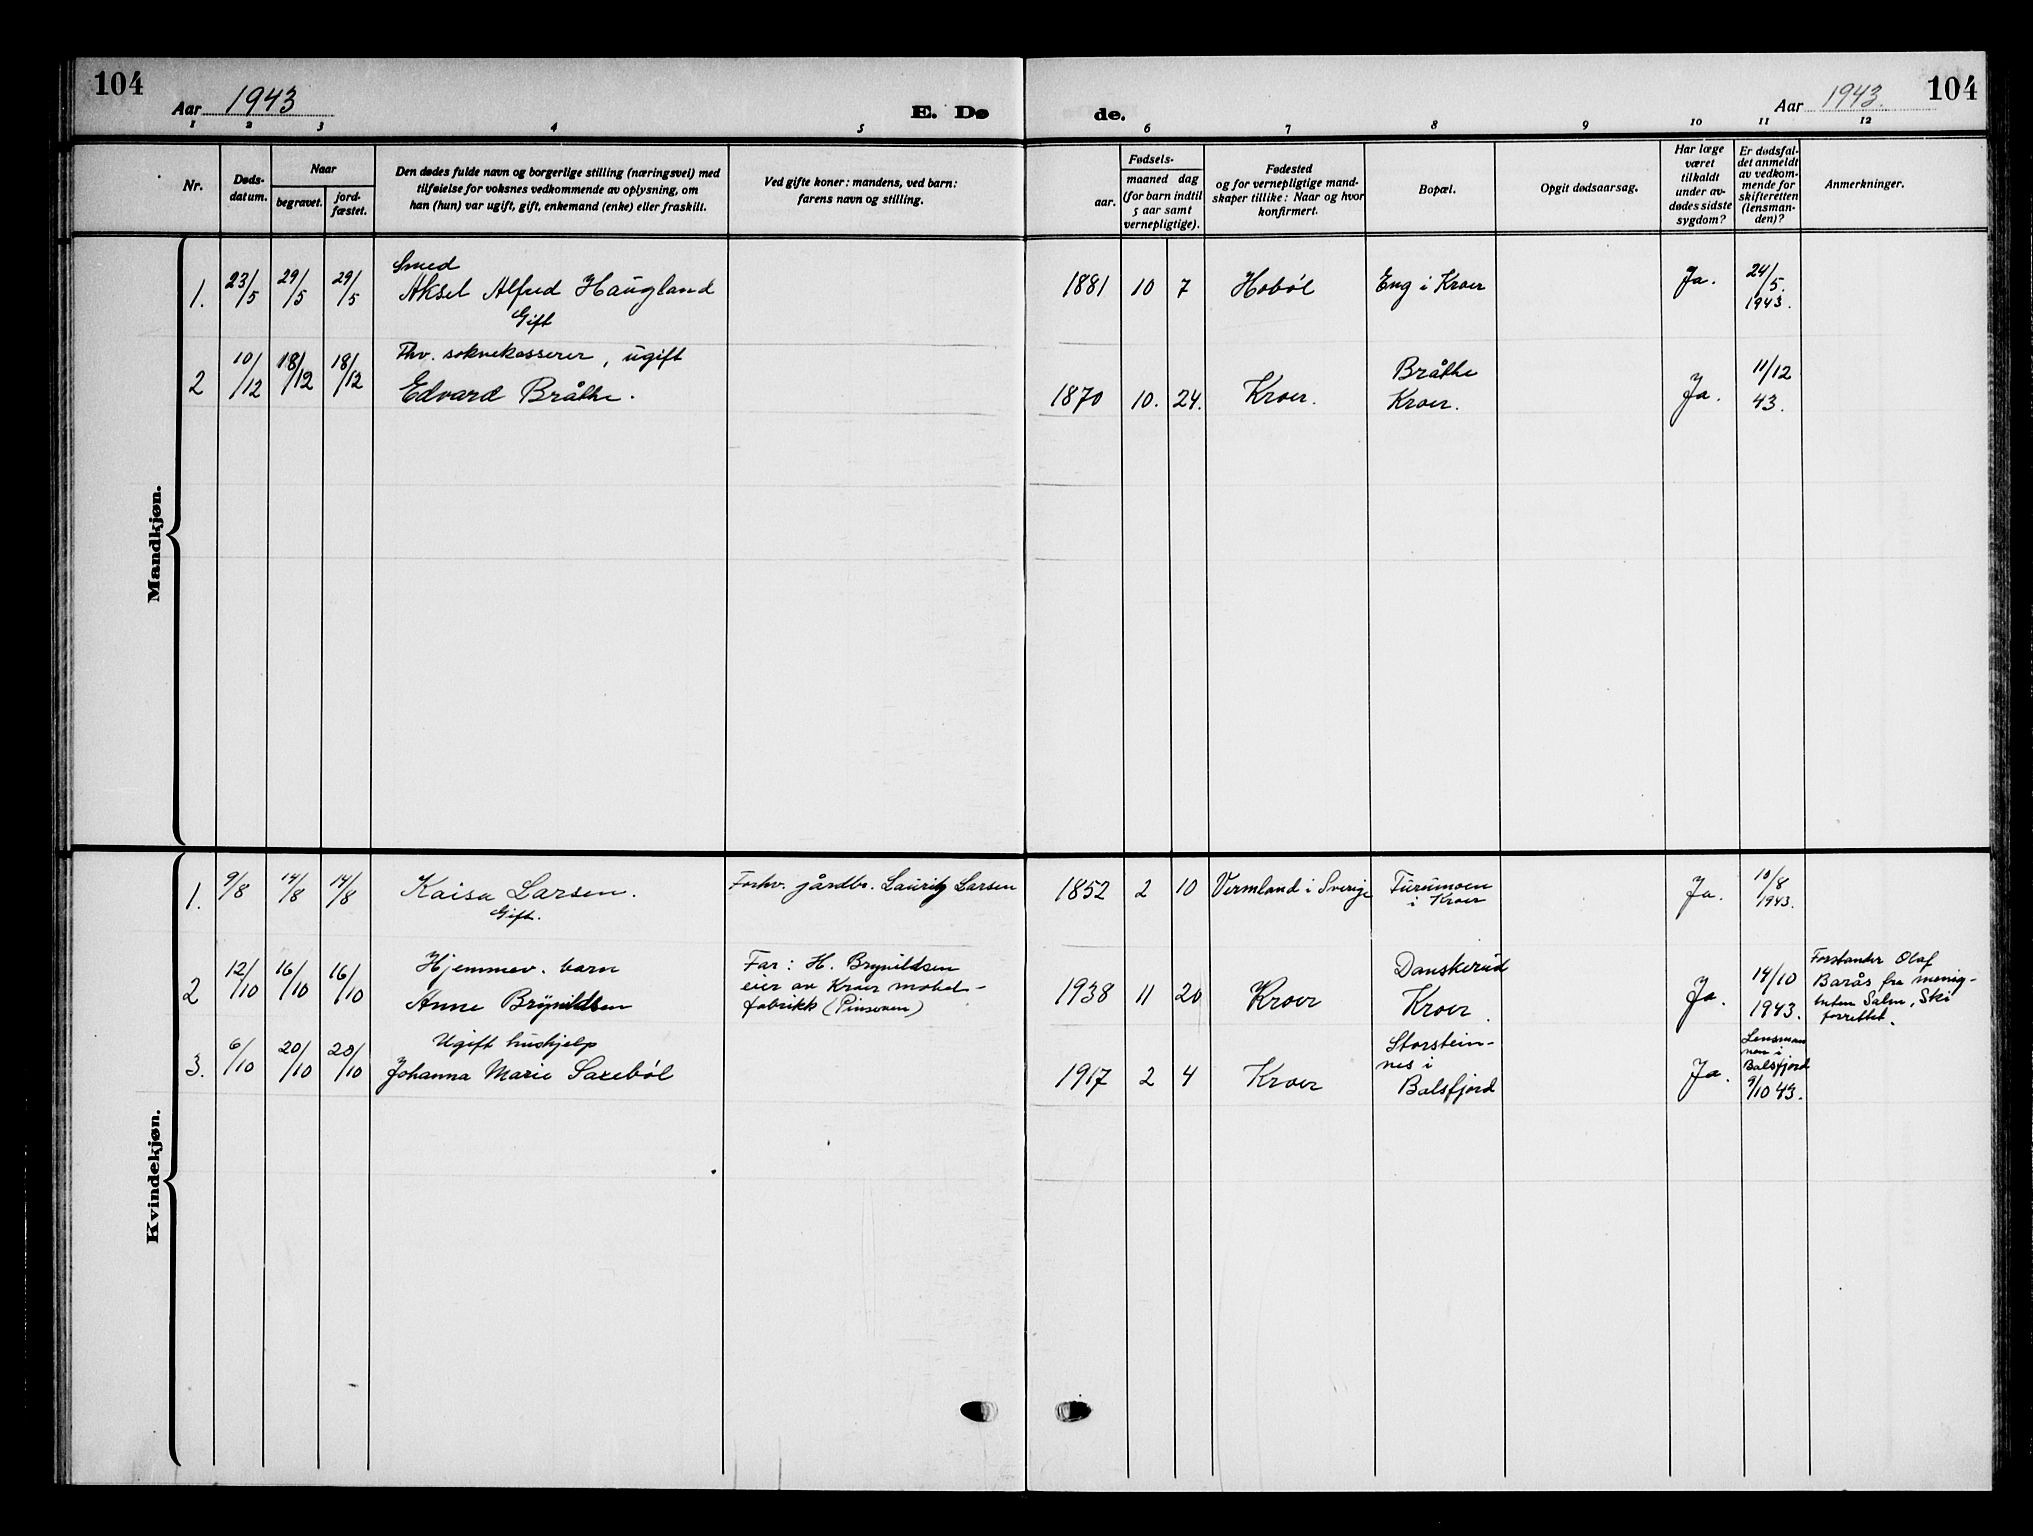 104
Aar 1943
E. Dø
1 2 3 4 5
Nr.
Døds-
datum.
Naar
begravet.
jord-
fæstet.
Den dødes fulde navn og borgerlige stilling (næringsvei) med
tilføielse for voksnes vedkommende av oplysning, om
han (hun) var ugift, gift, enkemand (enke) eller fraskilt.
Ved gifte koner: mandens, ved barn:
farens navn og stilling.
de.
Aar 1943.
104
6 7 8 9 10 11 12
Fødsels-
aar.
maaned dag
(for barn indtil
5 aar samt
vernepligtige).
Fødested
og for vernepligtige mand-
skaper tillike: Naar og hvor
konfirmert.
Bopæl.
Opgit dødsaarsag.
Har læge
været
tilkaldt
under av-
dødes sidste
sygdom?
Er dødsfal-
det anmeldt
av vedkom-
mende for
skifteretten
(lensman-
den)?
Anmerkninger.
Mandkjøn.
1. 23/5 29/5 29/5
Smed
Aksel Alfred Haugland
Gift
1881 10 7 Hobøl Eng i Kroer Ja. 24/5.
1943.
2 10/12 18/12 18/12
Fhv. soknekasserer, ugift
Edvard Bråthe.
1870 10. 24. Kroer.
Bråthe
Kroer.
Ja.
11/12
43.
Kvindekjøn.
1. 9/8 14/8 14/8
Kaisa Larsen.
Gift.
Forhv. gårdbr. Lauritz Larsen
1852 2 10 Vermland i Sverige
Furumoen
i Kroer
Ja.
10/8
1943.
2 12/10 16/10 16/10
Hjemmev. barn
Anne Brynildsen
Far: H. Brynildsen
eier av Kroer møbel-
fabrikk
1938 11 20 Kroer
Danskerud
Kroer.
Ja.
14/10
1943.
Forstander Olaf
Barås fra menig-
heten Salm, Ski
forrettet.
3. 6/10 20/10 20/10
Ugift hushjelp
Johanna Marie Saxebøl
1917 2 4 Kroer
Storstein-
nes i
Balsfjord
Ja.
Lensman
nen i
Balsfjord
9/10 43.